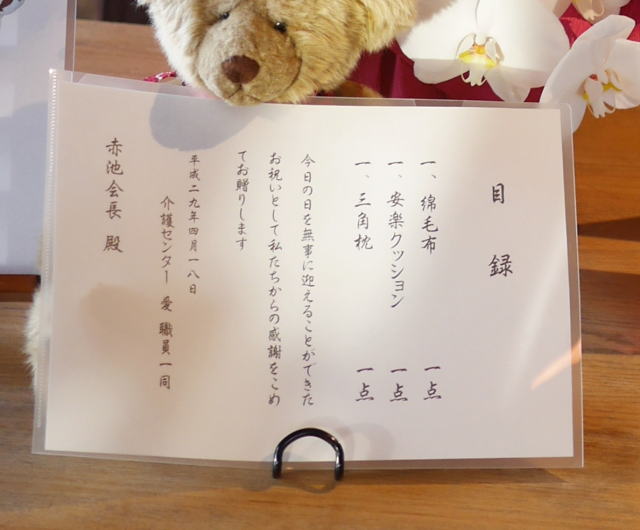 目録
一、綿毛布 一点
一、安楽クッション 一点
一、三角枕 一点
今日の日を無事に迎えることができた
お祝いとして私たちからの感謝をこめ
てお贈りします
平成二九年四月一八日
介護センター 愛 職員一同
赤池会長 殿